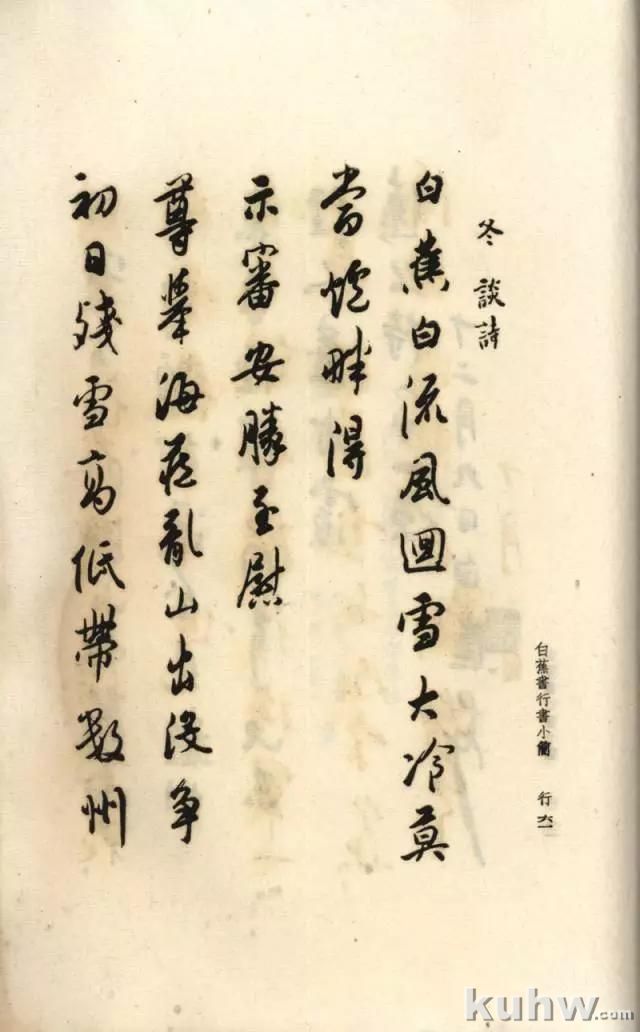 白蕉書行書小簡 行六一
冬談詩
白蕉白流風迴雪大冷莫
當爐畔得
示審安勝至慰
尊舉海藏亂山出沒爭
初日殘雪高低帶數州
kuhw.com